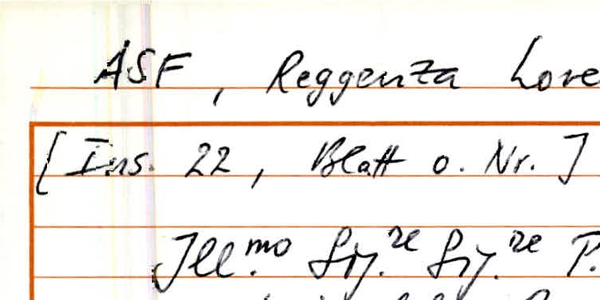 ASF, Reggenza Lore
[Ins. 22, Blatt o. Nr.]
Ill.mo Sig.re Sig.re P.